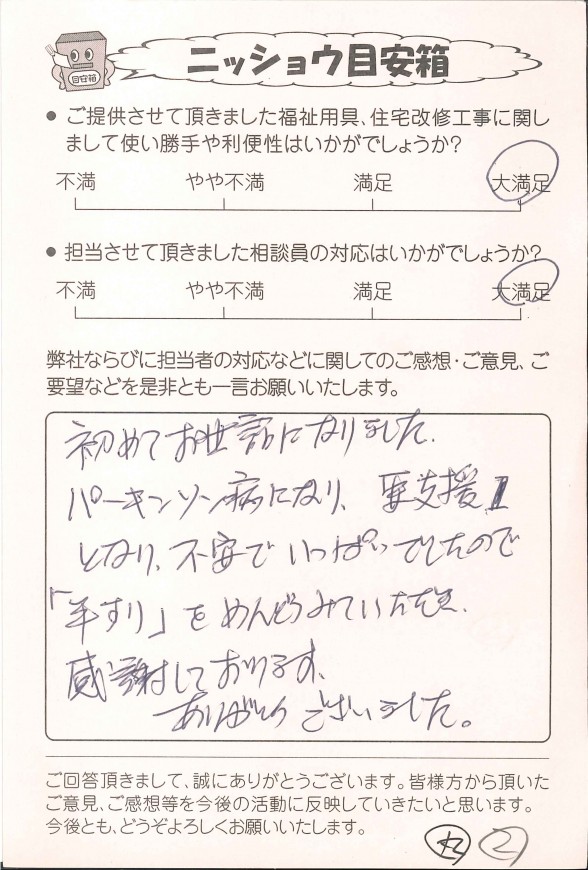 目安箱
ニッショウ目安箱
● ご提供させて頂きました福祉用具、住宅改修工事に関し
まして使い勝手や利便性はいかがでしょうか?
不満 やや不満 満足 大満足
● 担当させて頂きました相談員の対応はいかがでしょうか?
不満 やや不満 満足 大満足
弊社ならびに担当者の対応などに関してのご感想・ご意見、ご
要望などを是非とも一言お願いいたします。
初めてお世話になりました。
パーキンソン病になり、要支援1
となり、不安でいっぱいでしたので
「手すり」をめんどうみていただき、
感謝しております、
ありがとうございました。
ご回答頂きまして、誠にありがとうございます。皆様方から頂いた
ご意見、ご感想等を今後の活動に反映していきたいと思います。
今後とも、どうぞよろしくお願いいたします。